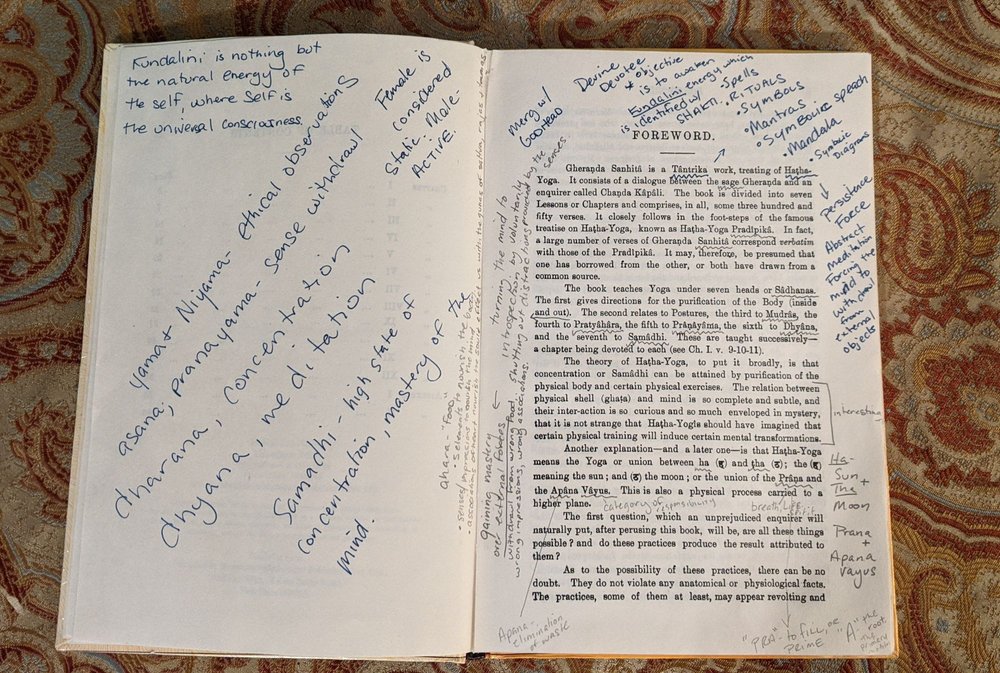 Kundalini is nothing but
the natural energy of
the self, where Self is
the universal consciousness.
Female is
considered
Static. Male-
ACTIVE.
yama + Niyama- Ethical observations
asana, pranayama- sense withdrawl
dharana, concentration
dhyana, meditation
Samadhi - high state of
concentration, mastery of the
mind.
ahara- "FOOD"
• 5 elements to nourish the body
gaining mastery
over external forces
withdrawl from wrong food,
wrong impressions, wrong associations.
turning the mind to
introspection by voluntarily
shutting out distractions provided by the
senses
Merg w/
GODHEAD
Devine
Devotee
+ objective
is to awaken
Kundalini energy which
is identified w/
SHAKTI.
• Spells
• RITUALS
• SYMBOLS
• Mantras
• SYMBOLIC speech
• Mandala
• Symbolic
Diagrams
Persistence
Force
Abstract
meditation
Forcing the
mind to
withdraw
from
external
objects
FOREWORD.
Gheraṇḍa Sanhitâ is a Tântrika work, treating of Haṭha-
Yoga. It consists of a dialogue between the sage Gheraṇḍa and an
enquirer called Chaṇḍa Kâpâli. The book is divided into seven
Lessons or Chapters and comprises, in all, some three hundred and
fifty verses. It closely follows in the foot-steps of the famous
treatise on Haṭha-Yoga, known as Haṭha-Yoga Pradîpikâ. In fact,
a large number of verses of Gheraṇḍa Sanhitâ correspond verbatim
with those of the Pradîpikâ. It may, therefore, be presumed that
one has borrowed from the other, or both have drawn from a
common source.
The book teaches Yoga under seven heads or Sâdhanas.
The first gives directions for the purification of the Body (inside
and out). The second relates to Postures, the third to Mudrâs, the
fourth to Pratyâhâra, the fifth to Prâṇâyâma, the sixth to Dhyâna,
and the seventh to Samâdhi. These are taught successively—
a chapter being devoted to each (see Ch. I. v. 9-10-11).
The theory of Haṭha-Yoga, to put it broadly, is that
concentration or Samâdhi can be attained by purification of the
physical body and certain physical exercises. The relation between
physical shell (ghaṭa) and mind is so complete and subtle, and
their inter-action is so curious and so much enveloped in mystery,
that it is not strange that Haṭha-Yogîs should have imagined that
certain physical training will induce certain mental transformations.
interesting
Another explanation—and a later one—is that Haṭha-Yoga
means the Yoga or union between ha (ह) and ṭha (ठ); the (ह)
meaning the sun; and (ठ) the moon; or the union of the Prâṇa and
the Apâna Vâyus. This is also a physical process carried to a
higher plane.
category of responsibility
breath, Life
Ha-
Sun
+
Tha
Moon
Prana
+
Apana
vayus
The first question, which an unprejudiced enquirer will
naturally put, after perusing this book, will be, are all these things
possible? and do these practices produce the result attributed to
them?
As to the possibility of these practices, there can be no
doubt. They do not violate any anatomical or physiological facts.
The practices, some of them at least, may appear revolting and
Apana-
Elimination
of waste
"PRA"- to FILL, or
PRIME
"A" the
root